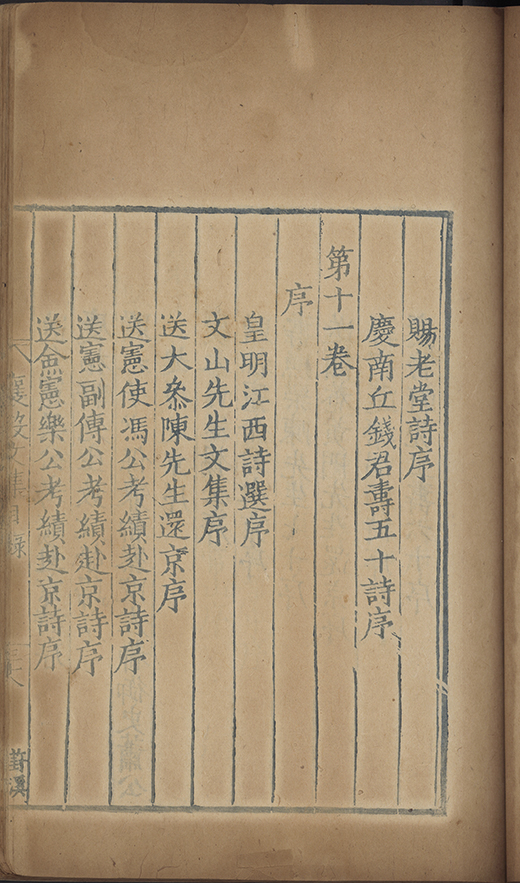 賜老堂詩序
慶南丘錢君壽五十詩序
第十一卷
序
皇明江西詩選序
文山先生文集序
送大叅陳先生還京序
送憲使馮公考績赴京詩序
送憲副傳公考績赴京詩序
送僉憲樂公考績赴京詩序
襄毅文集目錄
葑溪